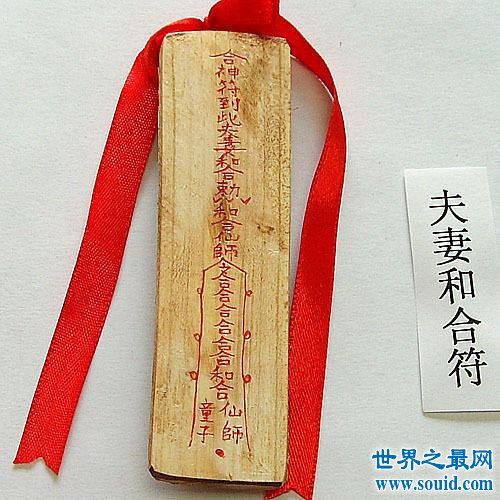 合神符到此夫妻和合勅和合仙師
合合合合合合和合
仙師
童子
夫妻和合符
世界之最网
www.souid.com